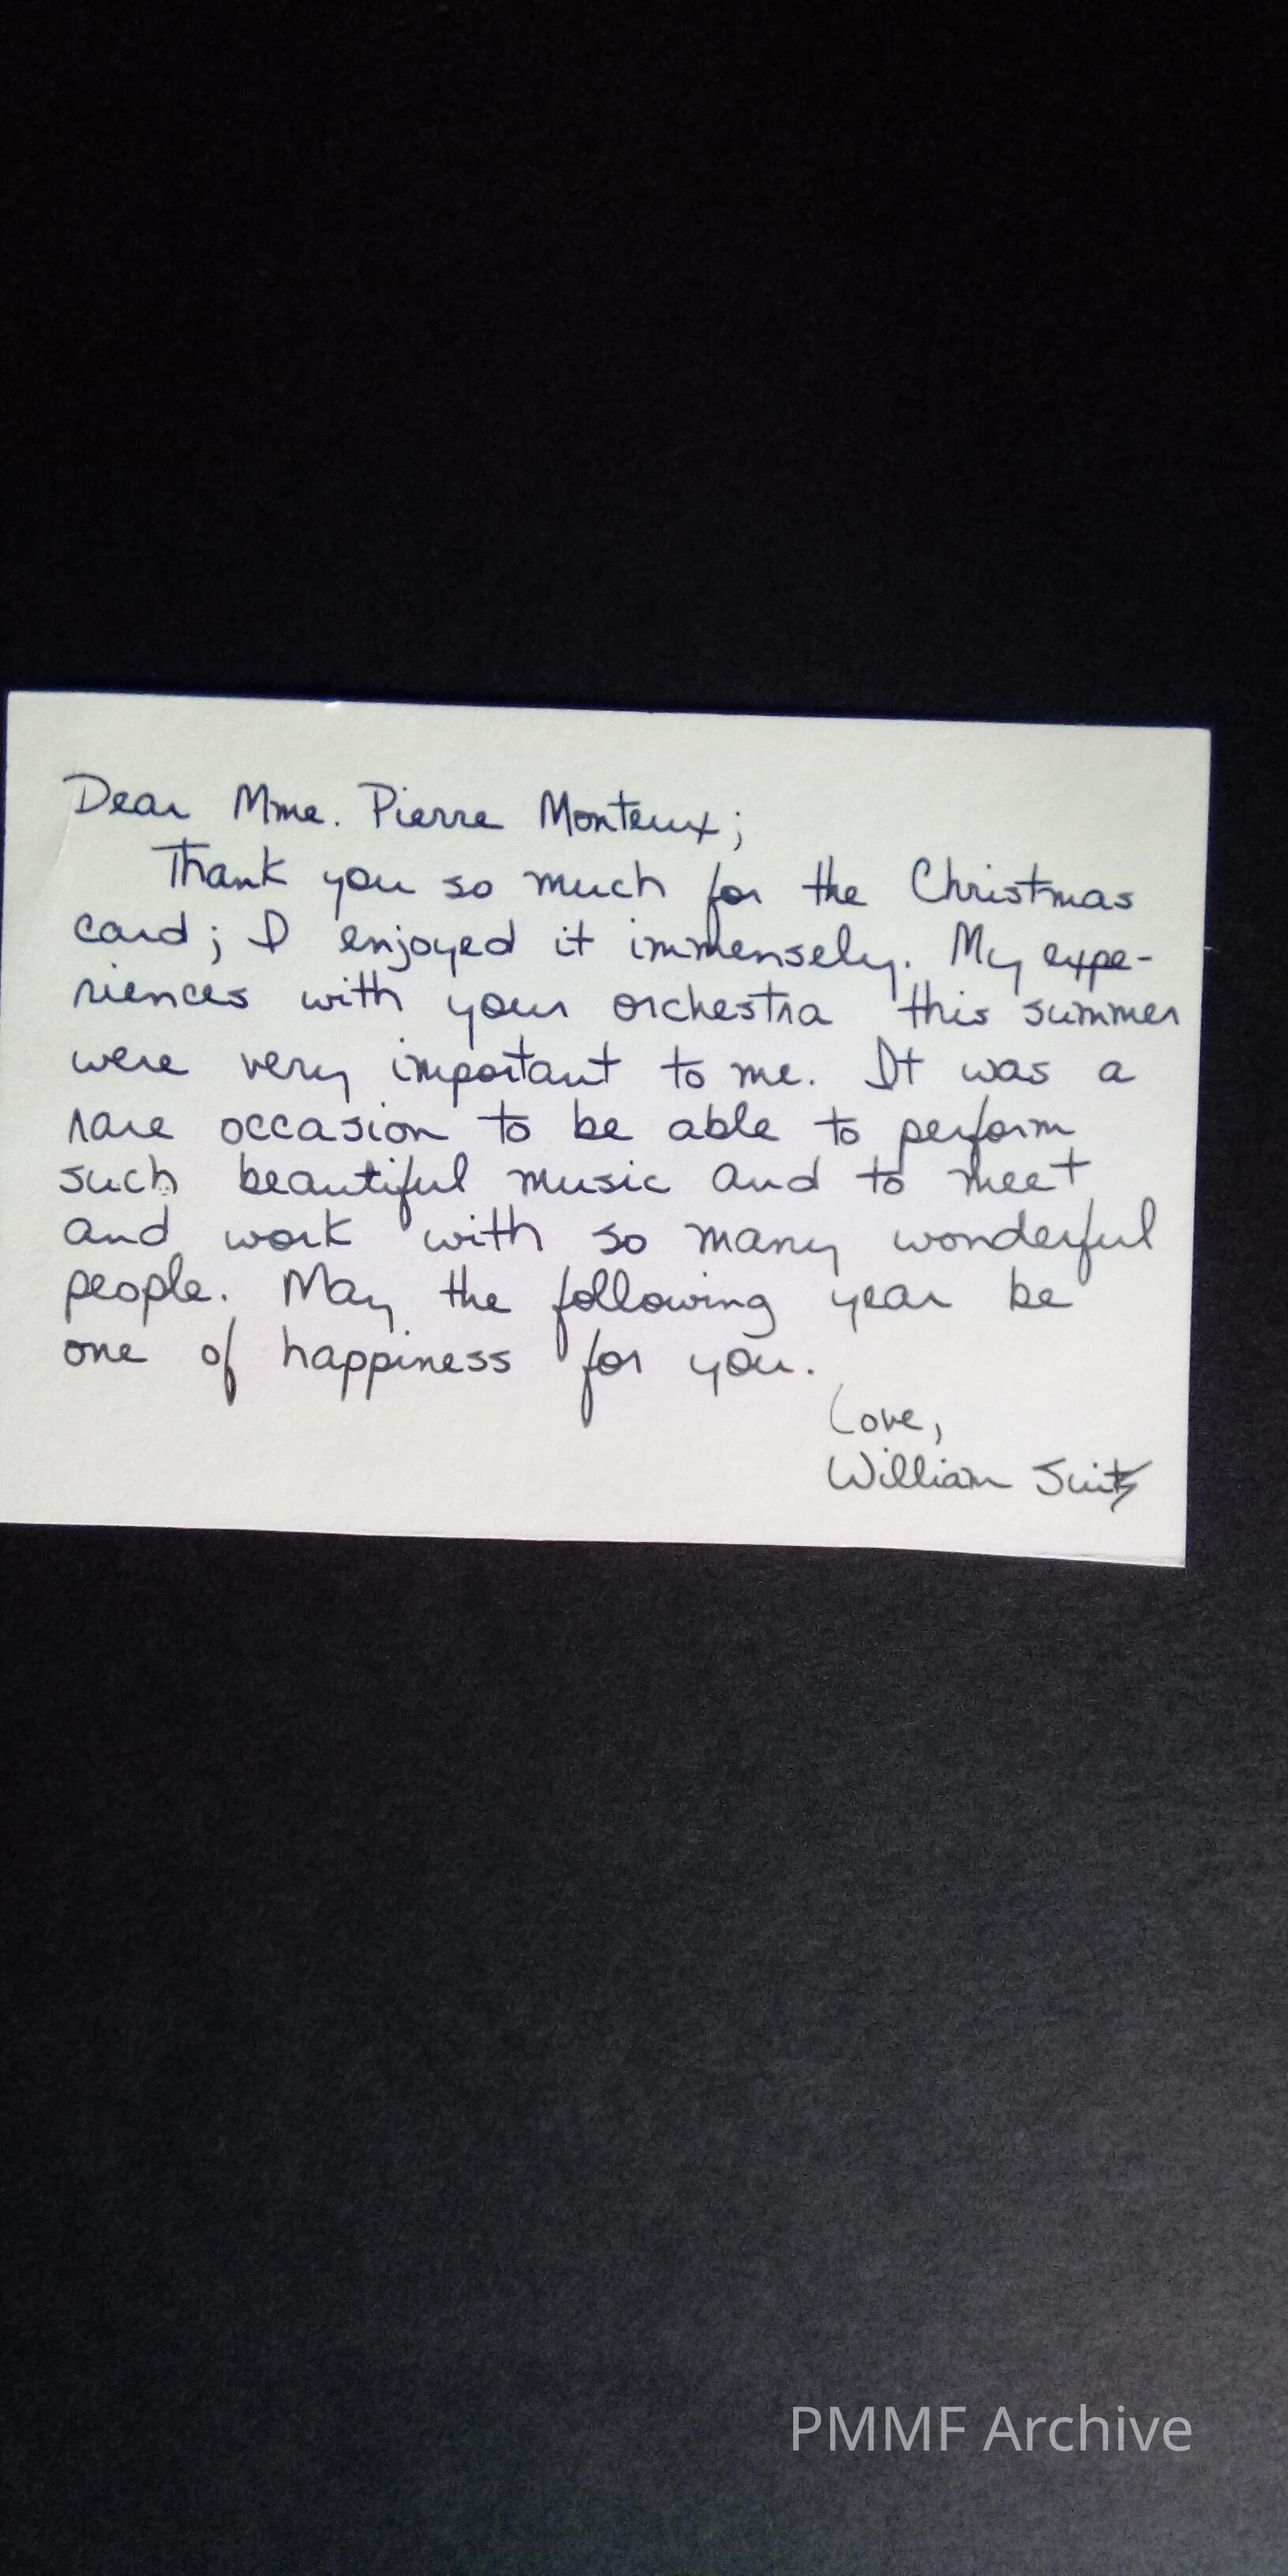 Dear Mme. Pierre Monteux;
Thank you so much for the Christmas
card; I enjoyed it immensely. My expe-
riences with your orchestra this summer
were very important to me. It was a
rare occasion to be able to perform
such beautiful music and to meet
and work with so many wonderful
people. May the following year be
one of happiness for you.
Love,
William
PMMF Archive